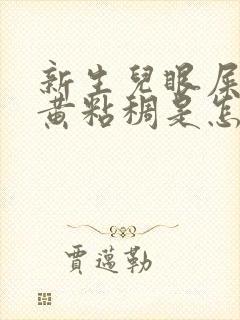 新生兒眼屎
黃粘稠是怎
賈邁勒